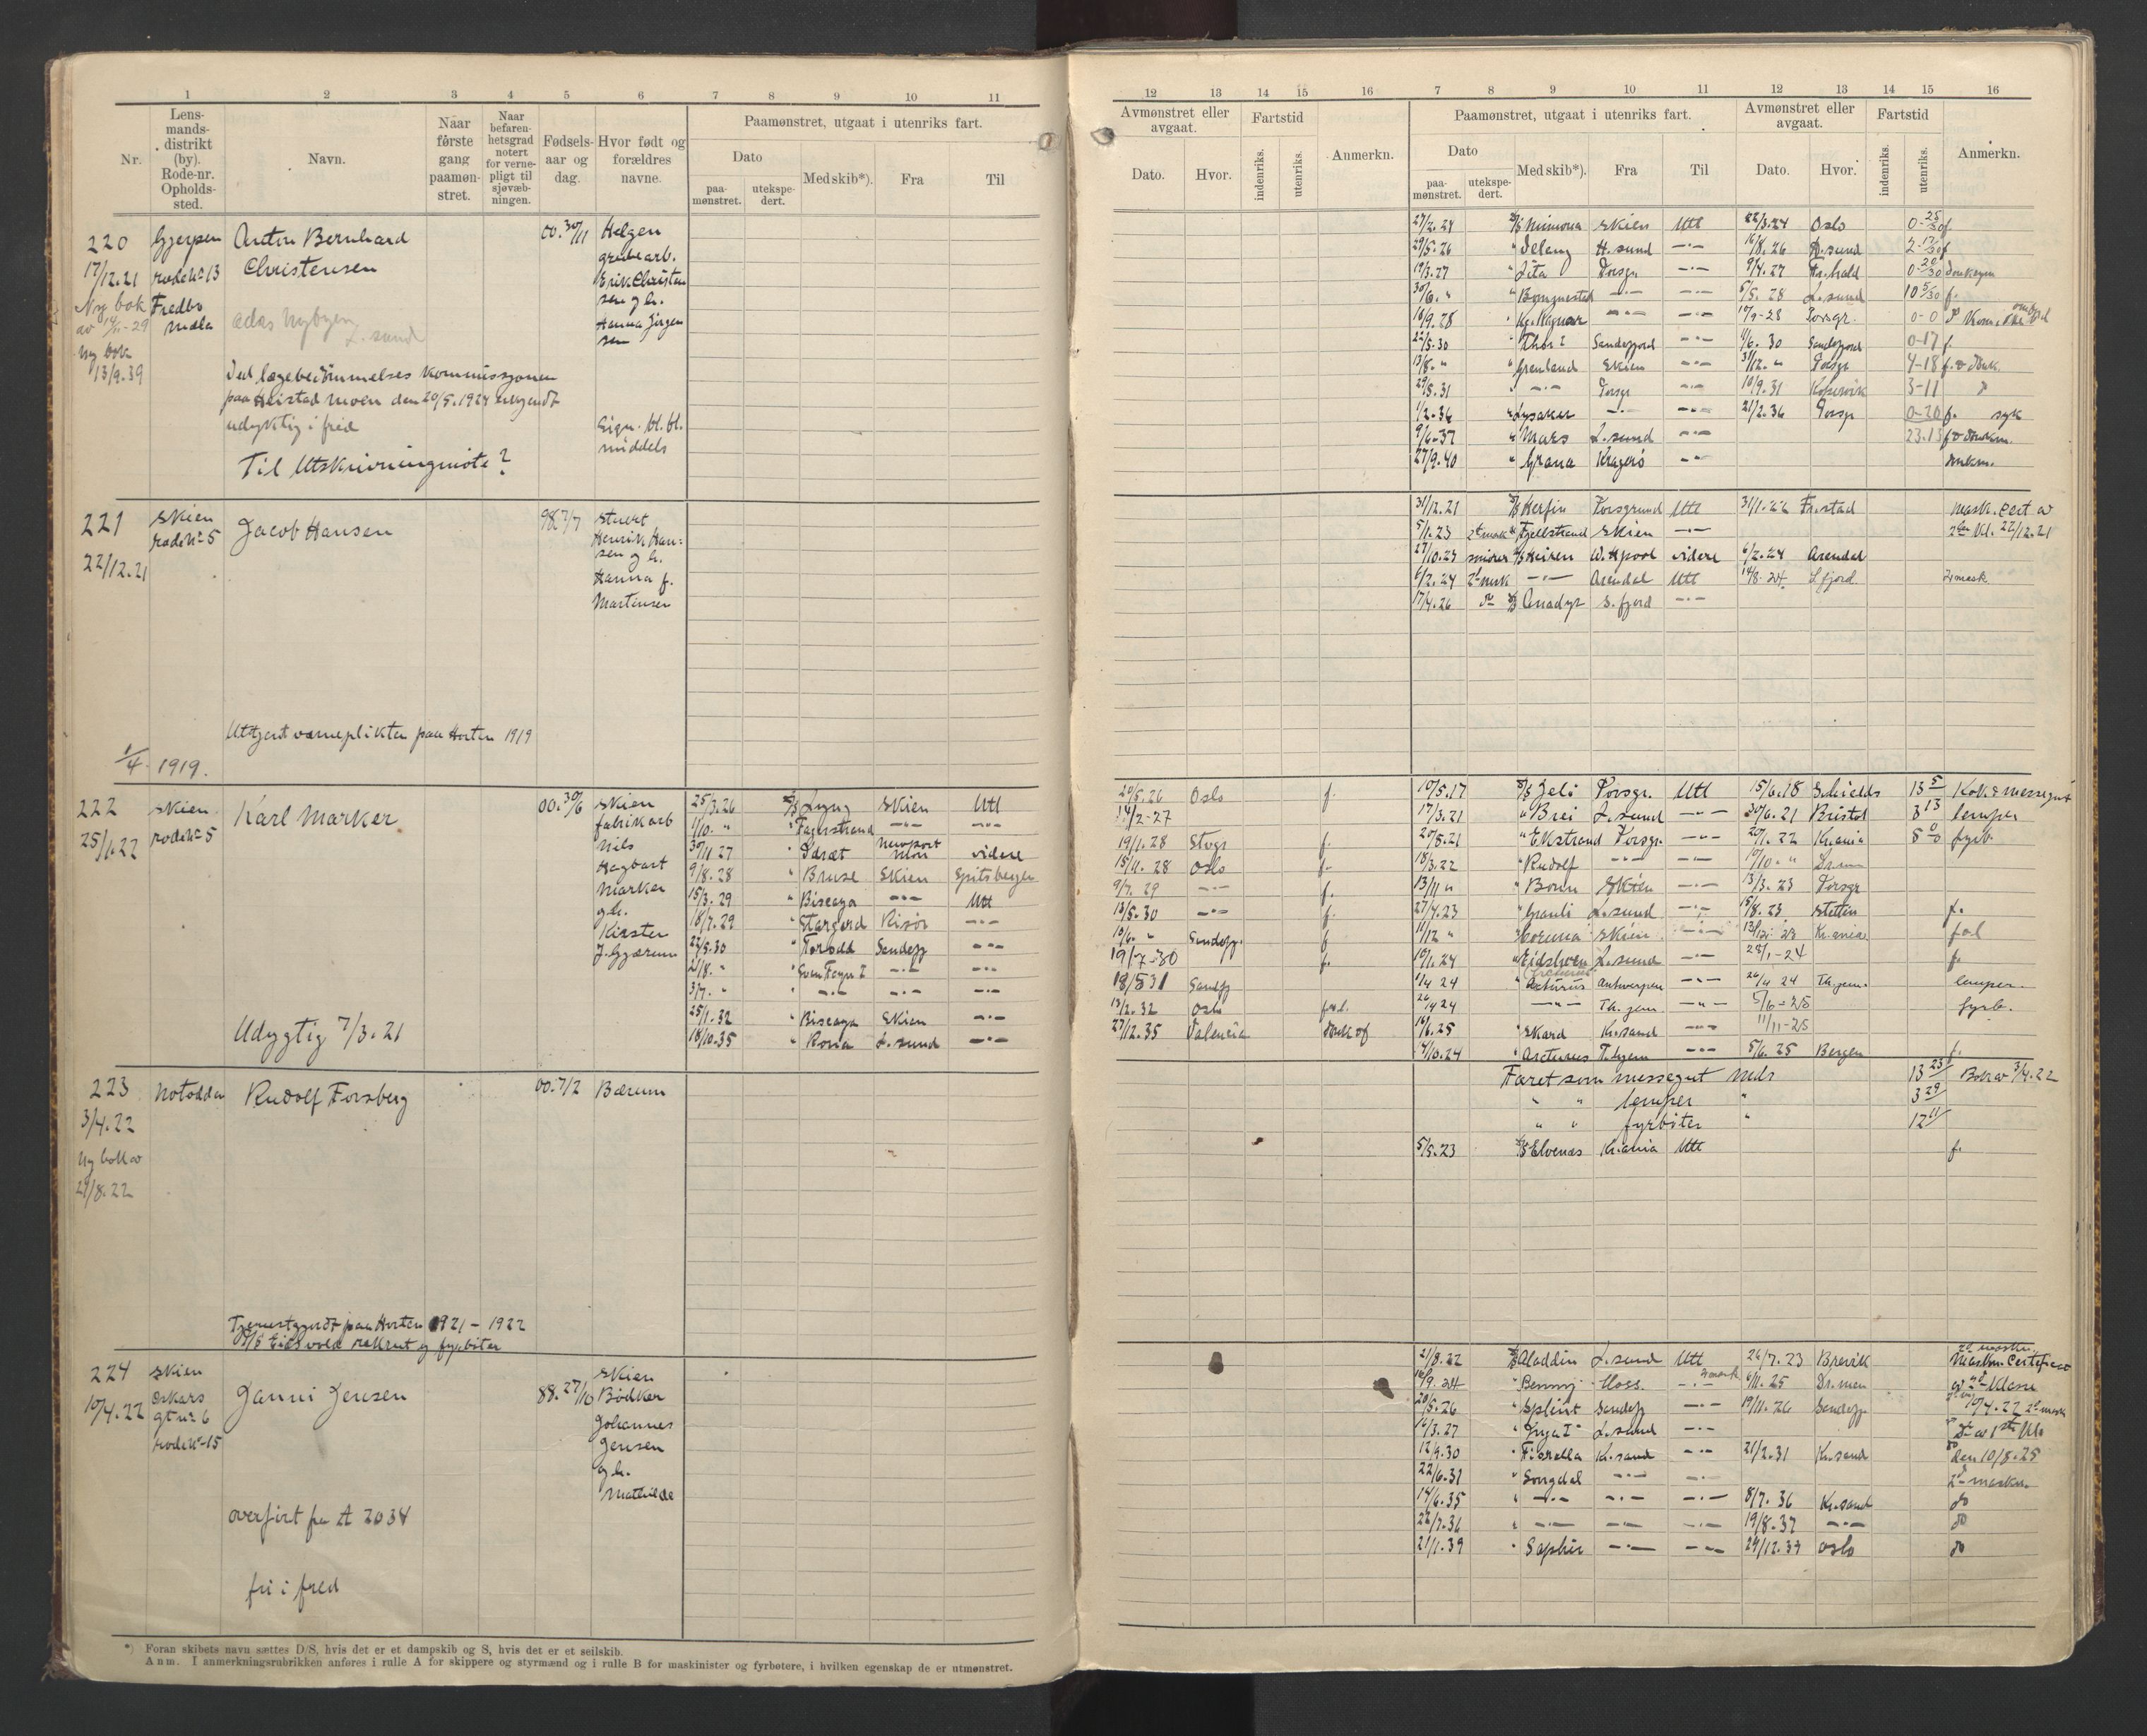 1 2 3 4 5 6 7 8 9 10 11
Nr.
Lens-
mands-
distrikt
(by).
Rode-nr.
Opholds-
sted.
Navn.
Naar
første
gang
paamøn-
stret.
Naar
befaren-
hetsgrad
notert
for verne-
pligt til
sjøvæb-
ningen.
Fødsels-
aar og
dag.
Hvor født og
forældres
navne.
Paamønstret, utgaat i utenriks fart.
Dato
paa-
mønstret.
utekspe-
dert.
Med skib*).
Fra
Til
12 13 14 15 16 7 8 9 10 11 12 13 14 15 16
Avmønstret eller
avgaat.
Dato.
Hvor.
Fartstid
indenriks.
utenriks.
Anmerkn.
Paamønstret, utgaat i utenriks fart.
Dato
paa-
mønstret.
utekspe-
dert.
Med skib*).
Fra
Til
Avmønstret eller
avgaat.
Dato.
Hvor.
Fartstid
indenriks.
utenriks.
Anmerkn.
220
17/12.21
Ny bok
av 14/11-29
Ny bok
13/9.39
Gjerpen
rode No 13
Fredbo
Mæla
Anton Bernhard
Christensen
L. sund
Ved lægebedømmelses kommissjonen
paa Heistad moen den 20/5.1924
udyktig i fred
Til Utskrivningsmöte?
00.30/11
Helgen
grubearb.
Erik Christen
sen og h.
Hanna Jörgen
sen
Eign. bl. bl.
middels
27/2.24 D/S Mimona Skien Utl 22/3.24 Oslo 0-25/30 f
29/5.26 " Delang H. sund —"— 16/8.26 2-17/30 f
19/3.27 " Lita Porsgr —"— 9/4.27 Fr.hald 0-20/30 Donkeym
30/6. " " Borgnestad —"— —"— 5/5.28 L. sund 10 5/30 f.
16/9.28 —"— —"— 10/9-28 Porsgr. 0-0
22/5.30 " Thor I Sandefjord —"— 11/6.30 Sandefjord 0-17 f.
13/8. " " Grenland Skien —"— 31/12. " Porsgr 4-18 f. o Donk.
29/5.31 " —"— Porsgr —"— 10/9.31 Kopervik 3-11 "
1/2.36 " Lysaker —"— —"— 21/2.36 Porsgr 0-20 f. syk
9/6.37 " Mars L. sund —"— 23.13 f o donkm.
27/9.40 " Grana Kragerö —"— Donkm.
221
22/12.21
Skien
rode No 5
Jacob Hansen
98 7/7
Stuert
Henrik Han-
sen og h.
Hanna f.
Martinsen
Uttjent værneplikten paa Horten 1919
1/4 - 1919.
31/12.21 D/S Kerfin Porsgrund Utl 31/1.22 Fr.stad Mask. Cert av
5/1.23 2d mask " Fjellstrand Skien —"— 2den Kl. 22/12.21
27/10.23 smörer D/S Heiren W. Hpool videre 6/2.24 Arendal
6/2.24 2d mask —"— Arendal Utl 14/8.24 S.fjord 2. mask
17/4.26 do D/S Anadyr S. fjord —"—
222
25/1.22
Skien
rode No 5
Karl Marker
00.30/6
Skien
fabrikarb
Nils
Hagbart
Marker
g.h.
Kirsten
J. Gjærum
Udygtig 7/3.21
25/3.26 D/S Lyng Skien Utl
1/10. " " Fagerstrand —"— —"—
30/11 27 " Idræt Newport Mon videre
9/8.28 " Bruse Skien Spitsbergen
15/3.29 " Biscaya —"— Utl
18/7.29 " Stargard Risör —"—
22/5.30 " Torodd Sandefj —"—
21/8. " " Sven Foyn I —"— —"—
3/7. " " —"— —"— —"—
25/1.32 " Biscaya Skien —"—
18/10.35 " Rona L. sund —"—
20/5.26 Oslo f.
14/2-27
19/1.28 Stvgr f.
15/11.28 Oslo f.
9/7.29 —"— f.
13/5.30 —"— f.
10/6. " Sandefj. f
19/7-30 f.
18/5 31 Sandefj
13/2.32 Oslo
27/12.35 Valencia Donk of
10/5.17 D/S Jeli Porsgr. Utl 15/6.18 Schields 13 5 Kok & messegut
17/3.21 " Brei L. sund —"— 30/6.21 Bristol 3 13 lemper
20/8.21 " Ekstrand Porsgr. —"— 20/1.22 Kr.ania 5 0 fyrb.
18/3.22 " Rudolf —"— —"— 10/10. " Dr.m
13/11 " " Bonn Skien —"— 13/3.23 Porsgr
27/4.23 " Granli L. sund —"— 15/8.23 Stettin f.
11/12 " Coruna Skien —"— 13/12.23 Kr.ania fol
10/1.24 " Eidshorn L. sund —"— 28/1-24 f.
1/4 24 " Arcturus Antwerpen —"— 26/4 24 Th.jem. lemper.
26/4 24 —"— Th. jem —"— 5/6-25 fyrb.
16/6.25 " Skard Kr.sand —"— 11/11-25
14/10.24 " Arcturus T.hjem —"— 5/6.25 Bergen f.
223
3/4.22
Ny bok av
21/8.22
Notodden
Rudolf Forsberg
00.7/2
Bærum
Tjenestgjordt paa Horten 1921 - 1922
P/S Eidsvold rekrut og fyrböter
Faret som messegut Mdr 13 23 Bok av 3/4.22
" " lemper " 3 29
" " fyrböter " 12 11
5/5.23 D/S Elvenes Kr.ania Utl f.
224
10/4.22
Skien
Oskars
gt No 6
rode No 15
Janni Jensen
88.27/10
Skien
Bödker
Johannes
Jensen
og h.
Mathilde
overfört fra A 2034
fri i fred
21/8.22 D/S Aladdin L. sund Utl 26/7.23 Brevik Maskm. Certificat
16/9.24 " Benny Moss. —"— 6/11.25 Dr.men av 2d Klasse
20/5.26 " Splint Sandefj —"— 19/11.26 Sandefj. 10/4.22 2d mask
16/3.27 " Inga I L. sund —"—
12/9.30 " Fiorella Kr.sand —"— 21/2.31 Kr.sand den 10/8.25
22/6.31 " Songdal —"— —"— 2d maskm.
14/6.35 " —"— —"— —"— 8/7.36 Kr.sand do
22/7.36 " —"— —"— —"— 19/8.37 —"— do
21/1.39 " Saphir —"— —"— 29/12.39 Oslo do
*) Foran skibets navn sættes D/S, hvis det er et dampskib og S, hvis det er et seilskib.
Anm. I anmerkningsrubrikken anføres i rulle A for skippere og styrmænd og i rulle B for maskinister og fyrbøtere, i hvilken egenskap de er utmønstret.